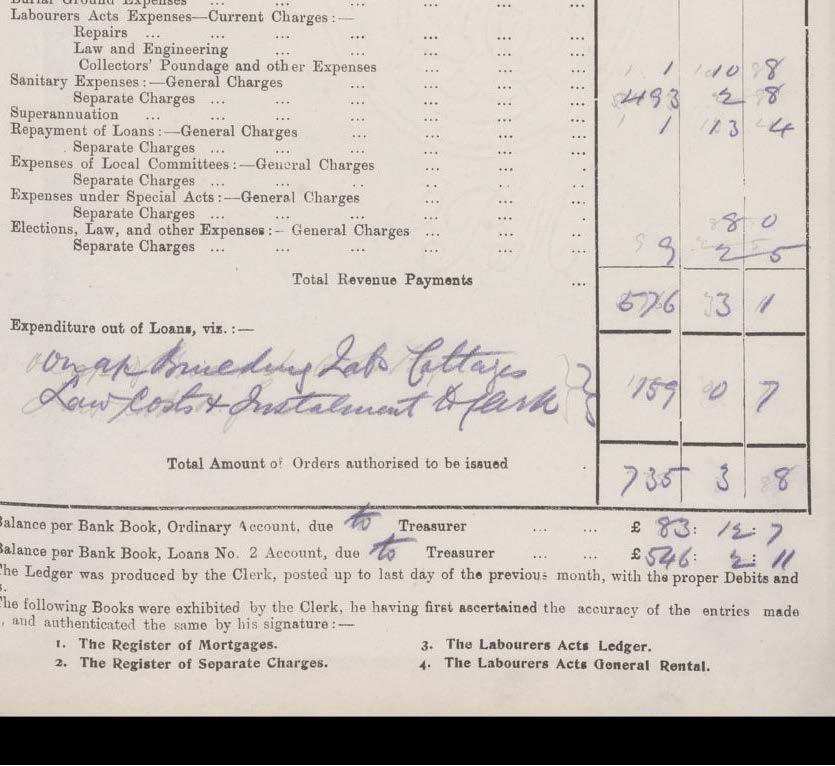 Burial Ground Expenses ... ... ... ... ... ...
Labourers Acts Expenses—Current Charges :—
Repairs ... ... ... ... ... ... ...
Law and Engineering ... ... ... ... ...
Collectors' Poundage and other Expenses ... ... ... 1 10 8
Sanitary Expenses :—General Charges ... ... ... ... 493 2 8
Separate Charges ... ... ... ... ... ...
Superannuation ... ... ... ... ... ... 1 13 4
Repayment of Loans :—General Charges ... ... ... ...
Separate Charges ... ... ... ... ... ...
Expenses of Local Committees :—General Charges ... ... .
Separate Charges ... ... .. .. .. ..
Expenses under Special Acts :—General Charges ... ... ...
Separate Charges ... ... ... ... ... ... 8 0
Elections, Law, and other Expenses :— General Charges ... ... ... 9 2 5
Separate Charges ... ... ... ... ... ...
Total Revenue Payments ... 576 3 1
Expenditure out of Loans, viz. :—
on a/c Building Lab Cottages
Law Costs & Instalment to Clerk } 159 0 7
Total Amount of Orders authorised to be issued . 735 3 8
Balance per Bank Book, Ordinary Account, due to Treasurer ... ... £ 83: 12: 7
Balance per Bank Book, Loans No. 2 Account, due to Treasurer ... ... £546: 2: 11
The Ledger was produced by the Clerk, posted up to last day of the previous month, with the proper Debits and
s.
The following Books were exhibited by the Clerk, he having first ascertained the accuracy of the entries made
, and authenticated the same by his signature :—
1. The Register of Mortgages. 3. The Labourers Acts Ledger.
2. The Register of Separate Charges. 4. The Labourers Acts General Rental.